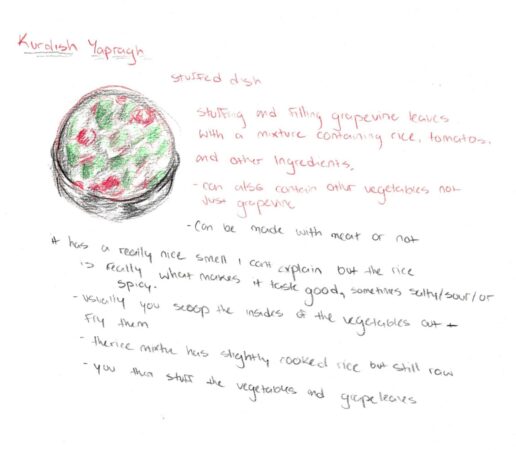 Kurdish Yapragh
stuffed dish
stuffing and filling grapevine leaves
with a mixture containing rice, tomatos,
and other ingredients.
- can also contain other vegetables not
Just grapevine
- Can be made with meat or not
It has a really nice smell I cant explain but the rice
is really what makes it taste good, sometimes salty/sour/or
spicy.
- usually you scoop the insides of the vegetables out +
Fry them
- the rice mixture has slightly cooked rice but still raw
- you then stuff the vegetables and grapeleaves